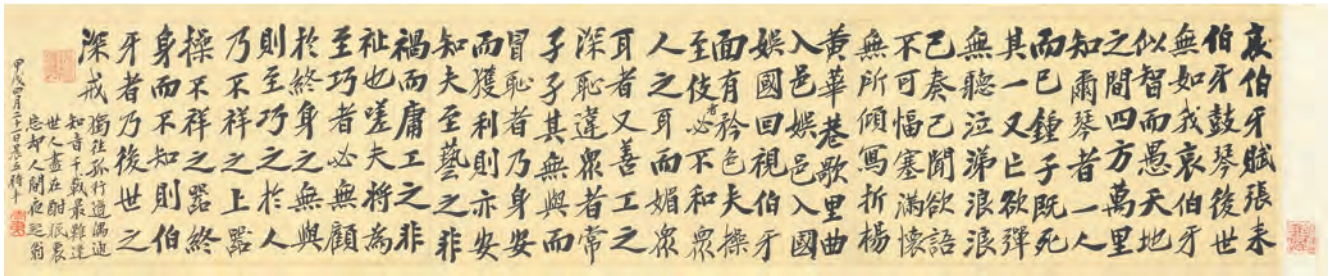 哀伯牙賦張耒
伯牙鼓琴後世
無如我哀伯牙
似智而愚天地
之間四方萬里
知爾琴者一人
而已鍾子既死
其一又亡欲彈
無聽泣涕浪浪
已奏已聞欲語
不可愊塞滿懷
無所傾寫折楊
黃華巷歌里曲
入邑娛邑入國
娛國回視伯牙
面有矜色夫操
至伎者必不和眾
人之耳而媚眾
耳者又善工之
深恥違眾者常
孑孑其無與而
冒恥者乃身安
而獲利則亦安
知夫至藝之非
禍而庸工之非
祉也嗟夫將為
至巧者必無顧
於終身之無與
則至巧之於人
乃不祥之上器
操不祥之器終
身而不知則伯
牙者乃後世之
深戒
獨往孤行道滿
知音千載最難逢
世人盡在酣眠裏
忘却人間夜起翁
甲戌四月二十一日晨